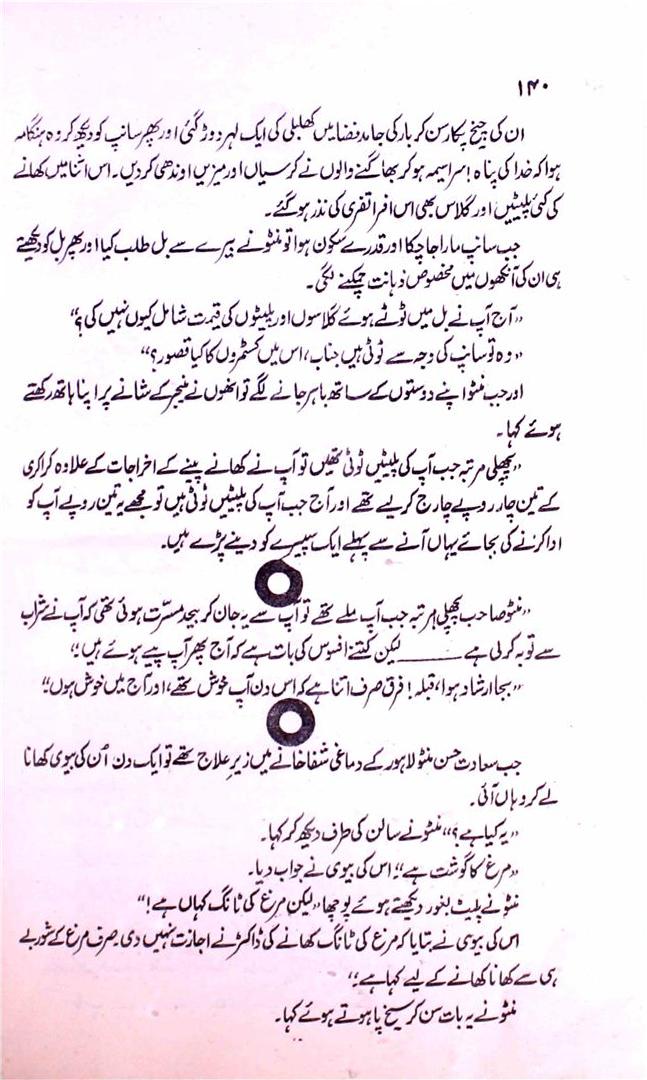 ۱۴۰
ان کی چیخ پکار سن کر بار کی جامد فضا میں کھلبلی کی ایک لہر دوڑ گئی اور پھر سانپ کو دیکھ کر وہ ہنگامہ
ہوا کہ خدا کی پناہ! سراسیمہ ہو کر بھاگنے والوں نے کرسیاں اور میزیں اوندھی کر دیں۔ اس اثنا میں کھانے
کی کئی پلیٹیں اور گلاس بھی اس افراتفری کی نذر ہو گئے۔
جب سانپ مارا جا چکا اور قدرے سکون ہوا تو منٹو نے بیرے سے بل طلب کیا اور پھر بل کو دیکھتے
ہی ان کی آنکھوں میں مخصوص ذہانت چمکنے لگی۔
"آج آپ نے بل میں ٹوٹے ہوئے گلاسوں اور پلیٹوں کی قیمت شامل کیوں نہیں کی؟"
"وہ تو سانپ کی وجہ سے ٹوٹی ہیں جناب، اس میں کسٹمروں کا کیا قصور؟"
اور جب منٹو اپنے دوستوں کے ساتھ باہر جانے لگے تو انھوں نے منیجر کے شانے پر اپنا ہاتھ رکھتے
ہوئے کہا۔
"پچھلی مرتبہ جب آپ کی پلیٹیں ٹوٹی تھیں تو آپ نے کھانے پینے کے اخراجات کے علاوہ کراکری
کے تین چار روپے چارج کر لیے تھے اور آج جب آپ کی پلیٹیں ٹوٹی ہیں تو مجھے یہ تین روپے آپ کو
ادا کرنے کی بجائے یہاں آنے سے پہلے ایک سپیرے کو دینے پڑے ہیں۔
"منٹو صاحب پچھلی مرتبہ جب آپ ملے تھے تو آپ سے یہ جان کر بیحد مسرّت ہوئی تھی کہ آپ نے شراب
سے توبہ کر لی ہے ______ لیکن کتنے افسوس کی بات ہے کہ آج پھر آپ پیے ہوئے ہیں"
"بجا ارشاد ہوا، قبلہ! فرق صرف اتنا ہے کہ اس دن آپ خوش تھے، اور آج میں خوش ہوں"
جب سعادت حسن منٹو لاہور کے دماغی شفاخانے میں زیرِ علاج تھے تو ایک دن اُن کی بیوی کھانا
لے کر وہاں آئی۔
"یہ کیا ہے؟" منٹو نے سالن کی طرف دیکھ کر کہا۔
"مرغ کا گوشت ہے"۔ اس کی بیوی نے جواب دیا۔
منٹو نے پلیٹ بغور دیکھتے ہوئے پوچھا "لیکن مرغ کی ٹانگ کہاں ہے!"
اس کی بیوی نے بتایا کہ مرغ کی ٹانگ کھانے کی ڈاکٹر نے اجازت نہیں دی۔ صرف مرغ کے شوربے
ہی سے کھانا کھانے کے لیے کہا ہے۔"
منٹو نے یہ بات سن کر سیخ پا ہوتے ہوئے کہا۔